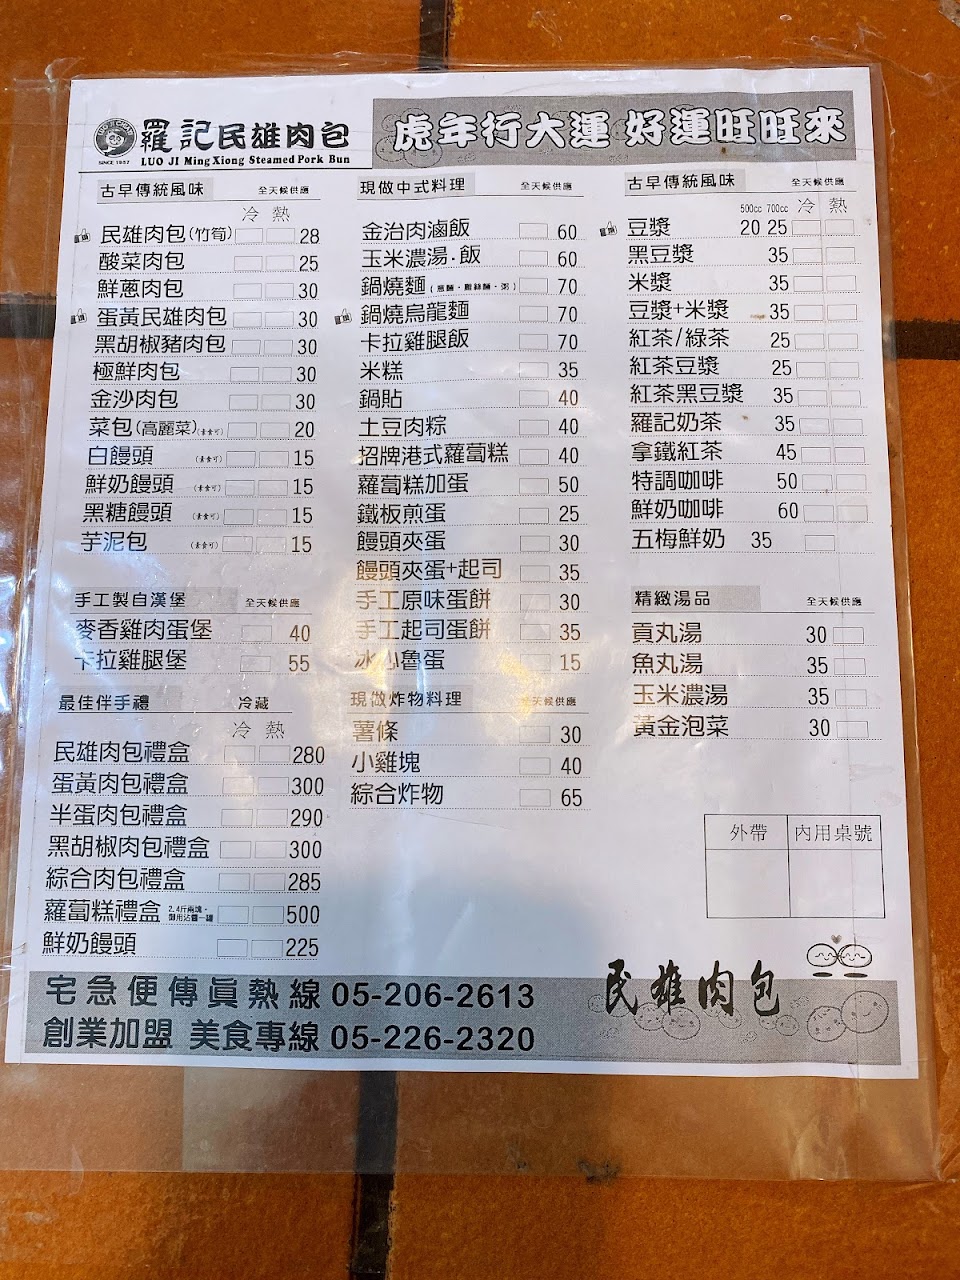 羅記民雄肉包
LUO JI Ming Xiong Steamed Pork Bun
SINCE 1957
虎年行大運 好運旺旺來
古早傳統風味 全天候供應
冷 熱
民雄肉包(竹筍) 28
酸菜肉包 25
鮮蔥肉包 30
蛋黃民雄肉包 30
黑胡椒豬肉包 30
極鮮肉包 30
金沙肉包 30
菜包(高麗菜)(素食可) 20
白饅頭 (素食可) 15
鮮奶饅頭 (素食可) 15
黑糖饅頭 (素食可) 15
芋泥包 (素食可) 15
手工製自漢堡 全天候供應
麥香雞肉蛋堡 40
卡拉雞腿堡 55
最佳伴手禮 冷藏
冷 熱
民雄肉包禮盒 280
蛋黃肉包禮盒 300
半蛋肉包禮盒 290
黑胡椒肉包禮盒 300
綜合肉包禮盒 285
蘿蔔糕禮盒 500
鮮奶饅頭 225
現做中式料理 全天候供應
金治肉滷飯 60
玉米濃湯·飯 60
鍋燒麵(意麵·雞絲麵·粥) 70
鍋燒烏龍麵 70
卡拉雞腿飯 70
米糕 35
鍋貼 40
土豆肉粽 40
招牌港式蘿蔔糕 40
蘿蔔糕加蛋 50
鐵板煎蛋 25
饅頭夾蛋 30
饅頭夾蛋+起司 35
手工原味蛋餅 30
手工起司蛋餅 35
冰心魯蛋 15
現做炸物料理 全天候供應
薯條 30
小雞塊 40
綜合炸物 65
古早傳統風味 全天候供應
500cc 700cc 冷 熱
豆漿 20 25
黑豆漿 35
米漿 35
豆漿+米漿 35
紅茶/綠茶 25
紅茶豆漿 25
紅茶黑豆漿 35
羅記奶茶 35
拿鐵紅茶 45
特調咖啡 50
鮮奶咖啡 60
五梅鮮奶 35
精緻湯品 全天候供應
貢丸湯 30
魚丸湯 35
玉米濃湯 35
黃金泡菜 30
外帶 內用桌號
民雄肉包
宅急便傳真熱線 05-206-2613
創業加盟 美食專線 05-226-2320